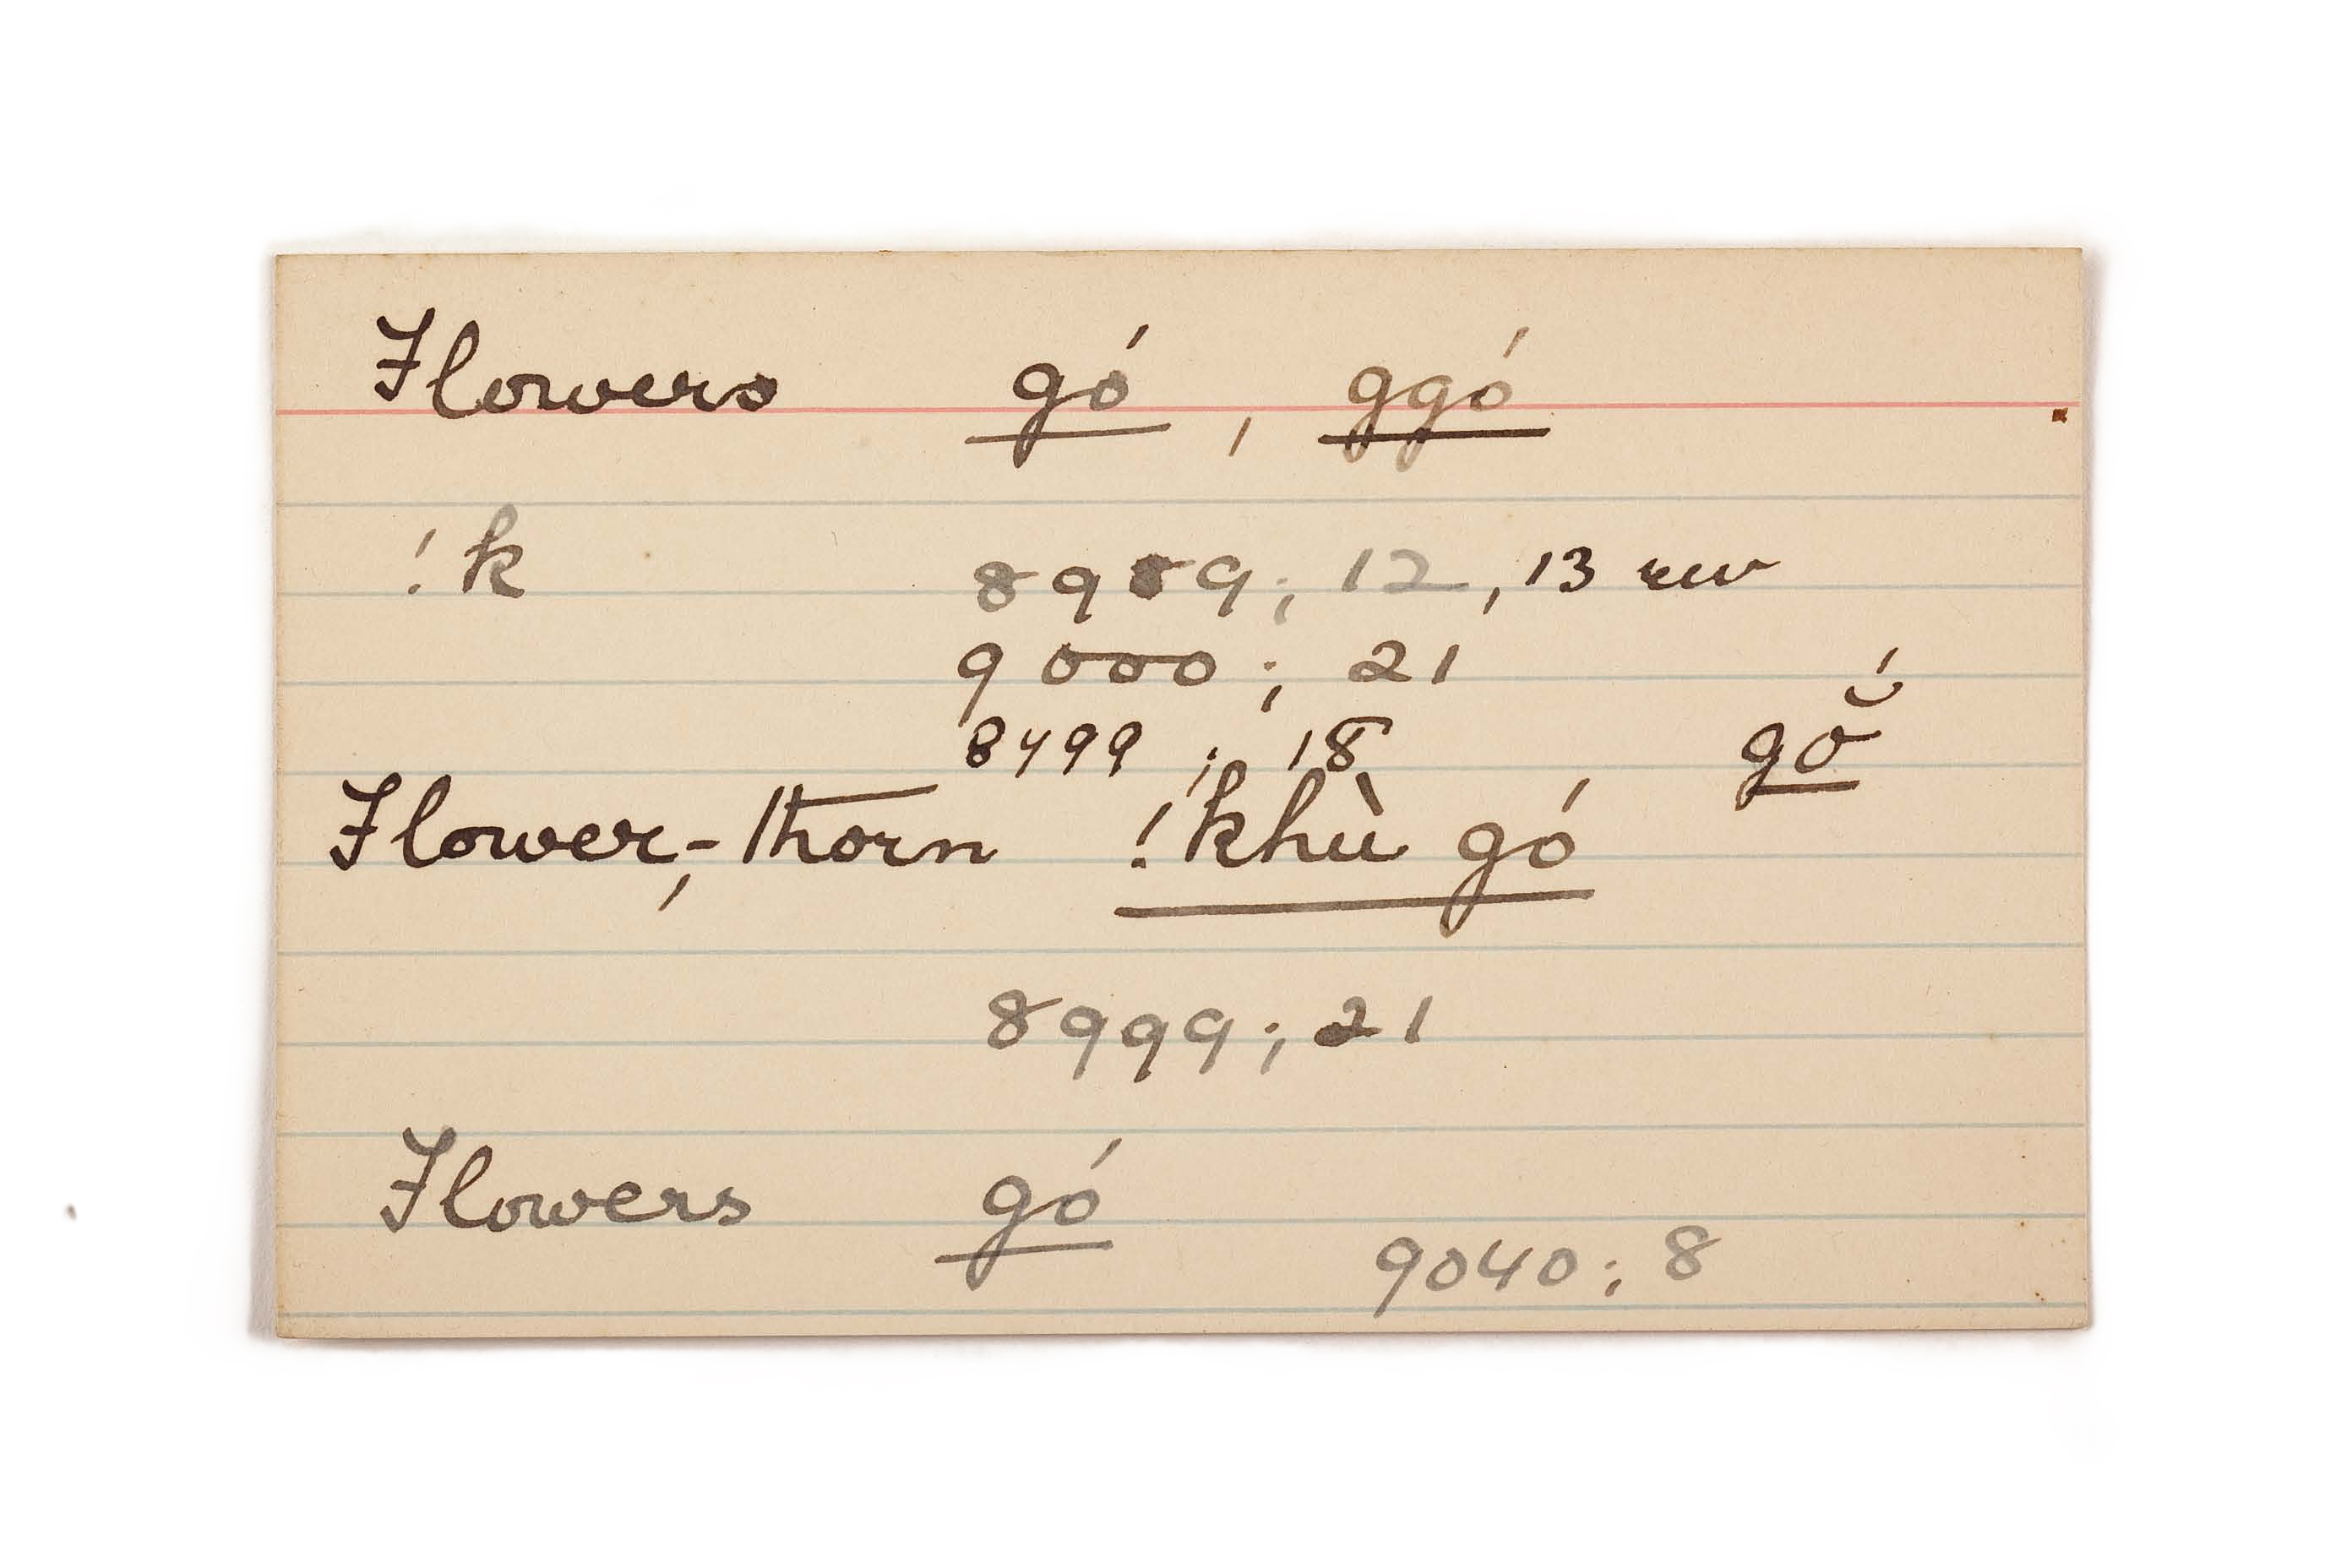 Flowers gó, ggó
!k 8989; 12, 13 rev
9000; 21
8499; 18 gŏ́
Flower,-thorn !khù gó
8999; 21
Flowers gó
9040; 8